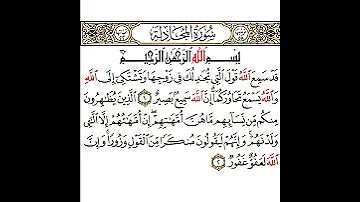 سُورَةُ الْمُجَادَلَةِ
بِسْمِ اللَّهِ الرَّحْمَٰنِ الرَّحِيمِ
قَدْ سَمِعَ اللَّهُ قَوْلَ الَّتِي تُجَادِلُكَ فِي زَوْجِهَا وَتَشْتَكِي إِلَى اللَّهِ
وَاللَّهُ يَسْمَعُ تَحَاوُرَكُمَا إِنَّ اللَّهَ سَمِيعٌ بَصِيرٌ ١ الَّذِينَ يُظَاهِرُونَ
مِنكُم مِّن نِّسَائِهِم مَّا هُنَّ أُمَّهَاتِهِمْ إِنْ أُمَّهَاتُهُمْ إِلَّا اللَّائِي
وَلَدْنَهُمْ وَإِنَّهُمْ لَيَقُولُونَ مُنكَرًا مِّنَ الْقَوْلِ وَزُورًا وَإِنَّ
اللَّهَ لَعَفُوٌّ غَفُورٌ ٢